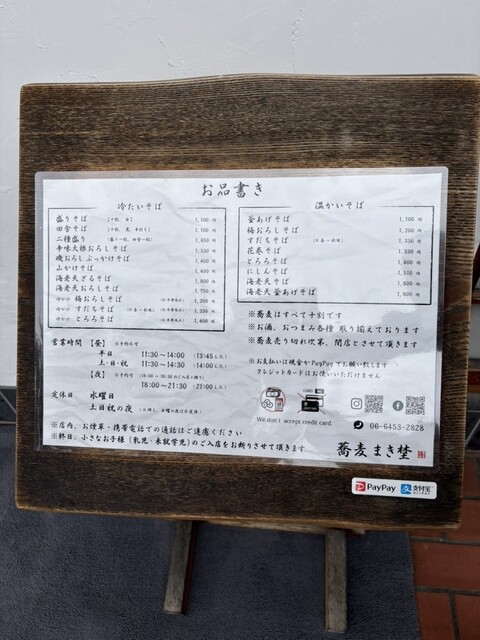 お品書き
冷たいそば
盛りそば 1,100 円
田舎そば 1,100 円
二種盛り 1,650 円
辛味大根おろしそば 1,330 円
磯おろしぶっかけそば 1,400 円
山かけそば 1,400 円
海老天ざるそば 1,800 円
海老天おろしそば
冷やかけ 梅おろしそば 1,200 円
冷やかけ すだちそば 1,330 円
冷やかけ とろろそば 1,400 円
温かいそば
釜あげそば 1,100 円
梅おろしそば 1,200 円
すだちそば 1,330 円
花巻そば 1,330 円
とろろそば
にしんそば
海老天そば
海老天 釜あげそば
※蕎麦はすべて十割です
※お酒、おつまみ各種 取り揃えております
※蕎麦売り切れ次第、閉店とさせて頂きます
※お支払いは現金かPayPayでお願い致します
クレジットカードはお使いいただけません
営業時間 【昼】 ※予約不可
平日 11:30~14:00 (13:45 L.O.)
土・日・祝 11:30~14:30 (14:00 L.O.)
【夜】 ※予約可
18:00~21:30 (21:00 L.O.)
定休日 水曜日
土日祝の夜
※店内、お煙草・携帯電話での通話はご遠慮ください
※終日、小さなお子様(乳児・未就学児)のご入店をお断りさせて頂きます
We don't accept credit card.
06-6453-2828
蕎麦まき埜
PayPay 支付宝 ALIPAY